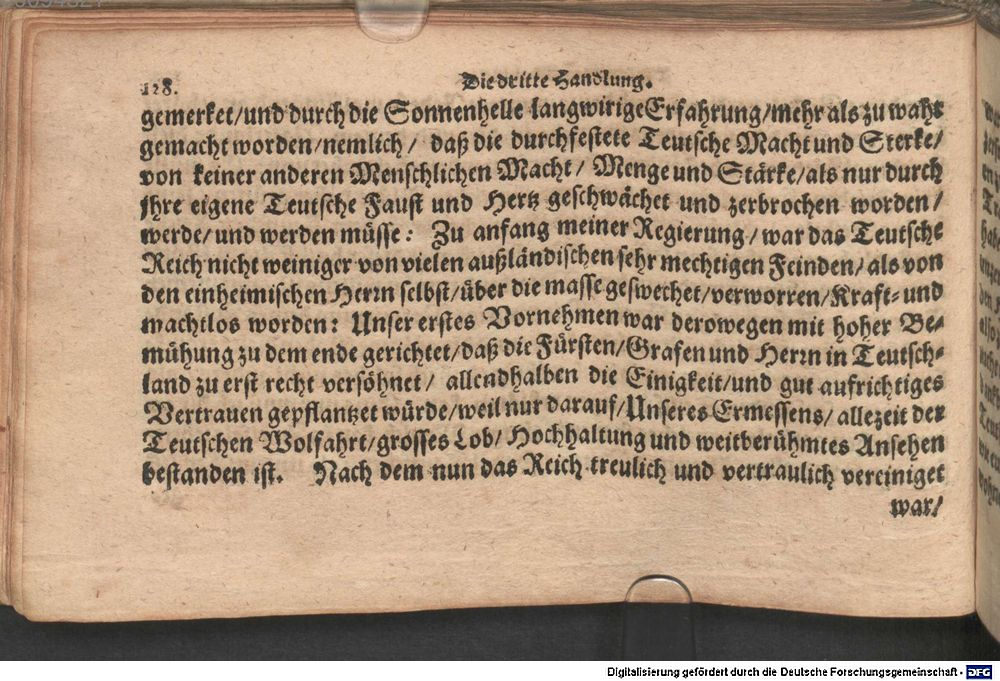 128.
Die dritte Handlung.
gemerket/und durch die Sonnenhelle langwirige Erfahrung/mehr als zu wahr
gemacht worden/nemlich/ daß die durchfestete Teutsche Macht und Sterke/
von keiner anderen Menschlichen Macht/ Menge und Stärke/als nur durch
jhre eigene Teutsche Faust und Hertz geschwächet und zerbrochen worden/
werde/und werden müsse: Zu anfang meiner Regierung/war das Teutsche
Reich nicht weiniger von vielen außländischen sehr mechtigen Feinden/als von
den einheimischen Herrn selbst/über die masse geswechet/verworren/Kraft-und
machtlos worden: Unser erstes Vornehmen war derowegen mit hoher Be-
mühung zu dem ende gerichtet/daß die Fürsten/Grafen und Herrn in Teutsch-
land zu erst recht versöhnet/ allendhalben die Einigkeit/und gut aufrichtiges
Vertrauen gepflantzet würde/weil nur darauf/Unseres Ermessens/allezeit der
Teutschen Wolfahrt/grosses Lob/Hochhaltung und weitberühmtes Ansehen
bestanden ist. Nach dem nun das Reich treulich und vertraulich vereiniget
war/
Digitalisierung gefördert durch die Deutsche Forschungsgemeinschaft - DFG